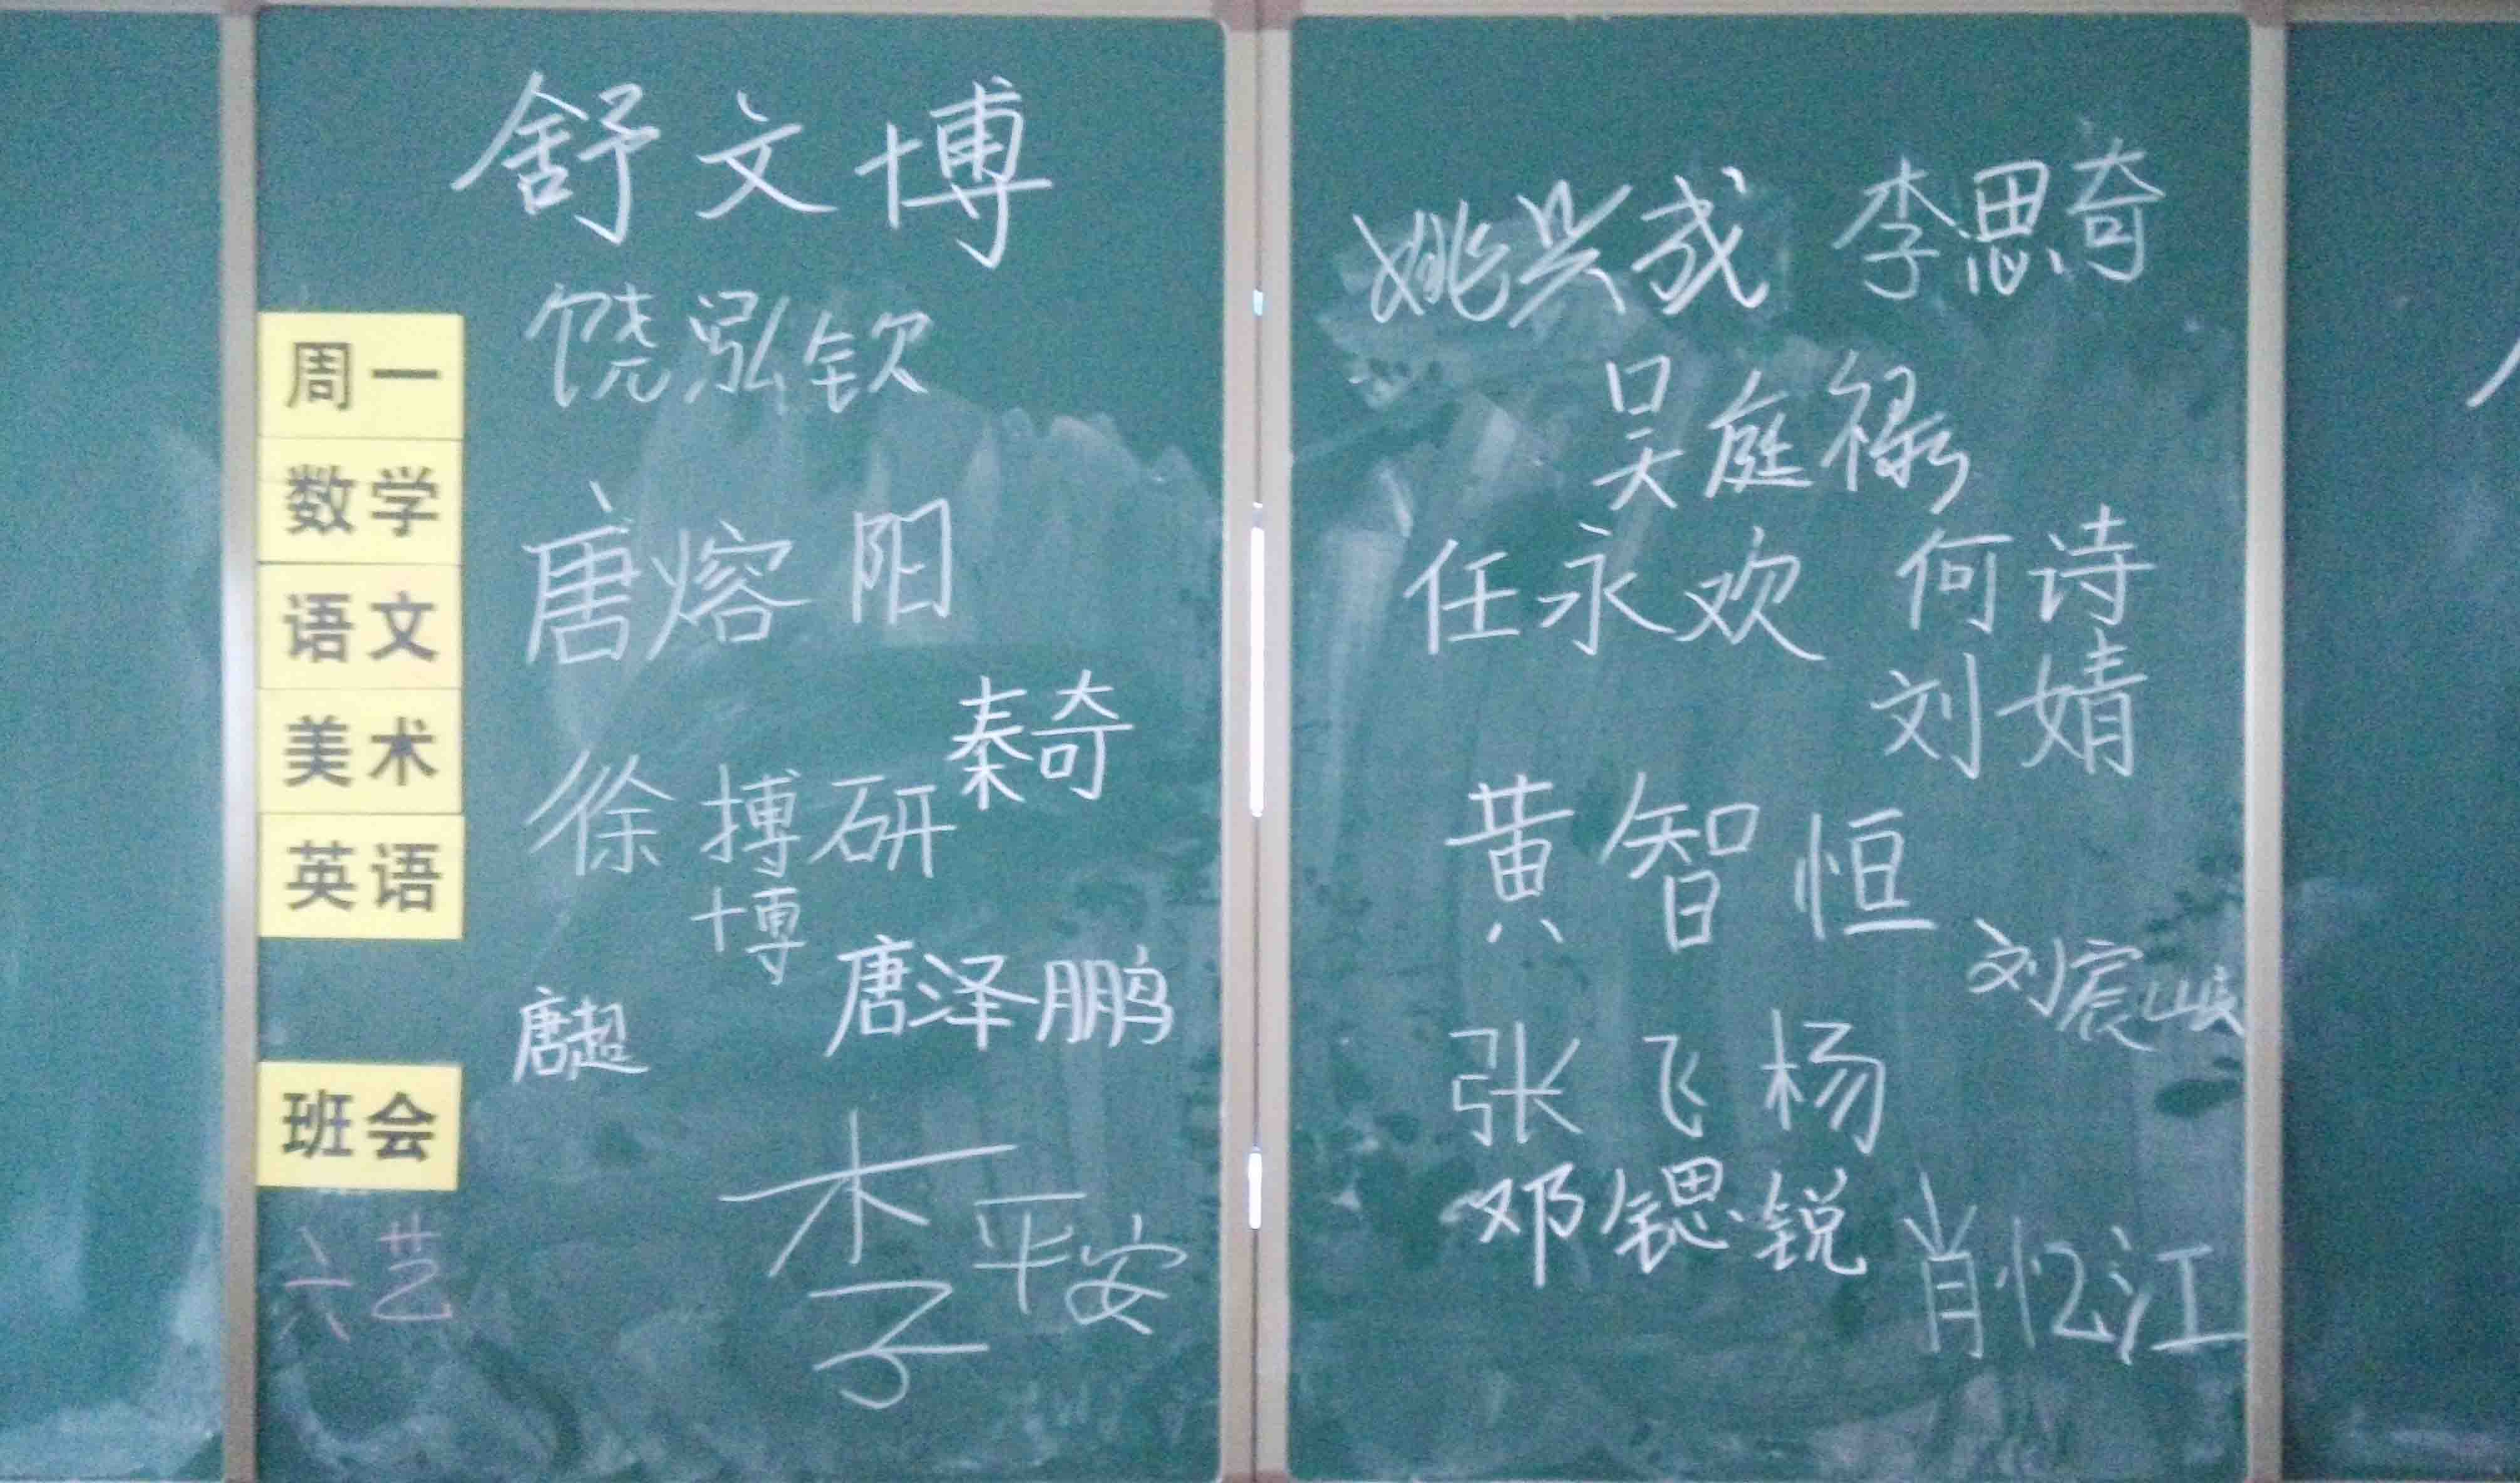 舒文博
饶泓钦
唐熔阳
秦奇
徐搏研
博
唐泽鹏
唐超
李平安
周一
数学
语文
美术
英语
班会
六艺
姚兴成 李思奇
吴庭禄
任永欢 何诗
刘婧
黄智恒
刘宸
张飞杨
邓锶锐
肖忆江